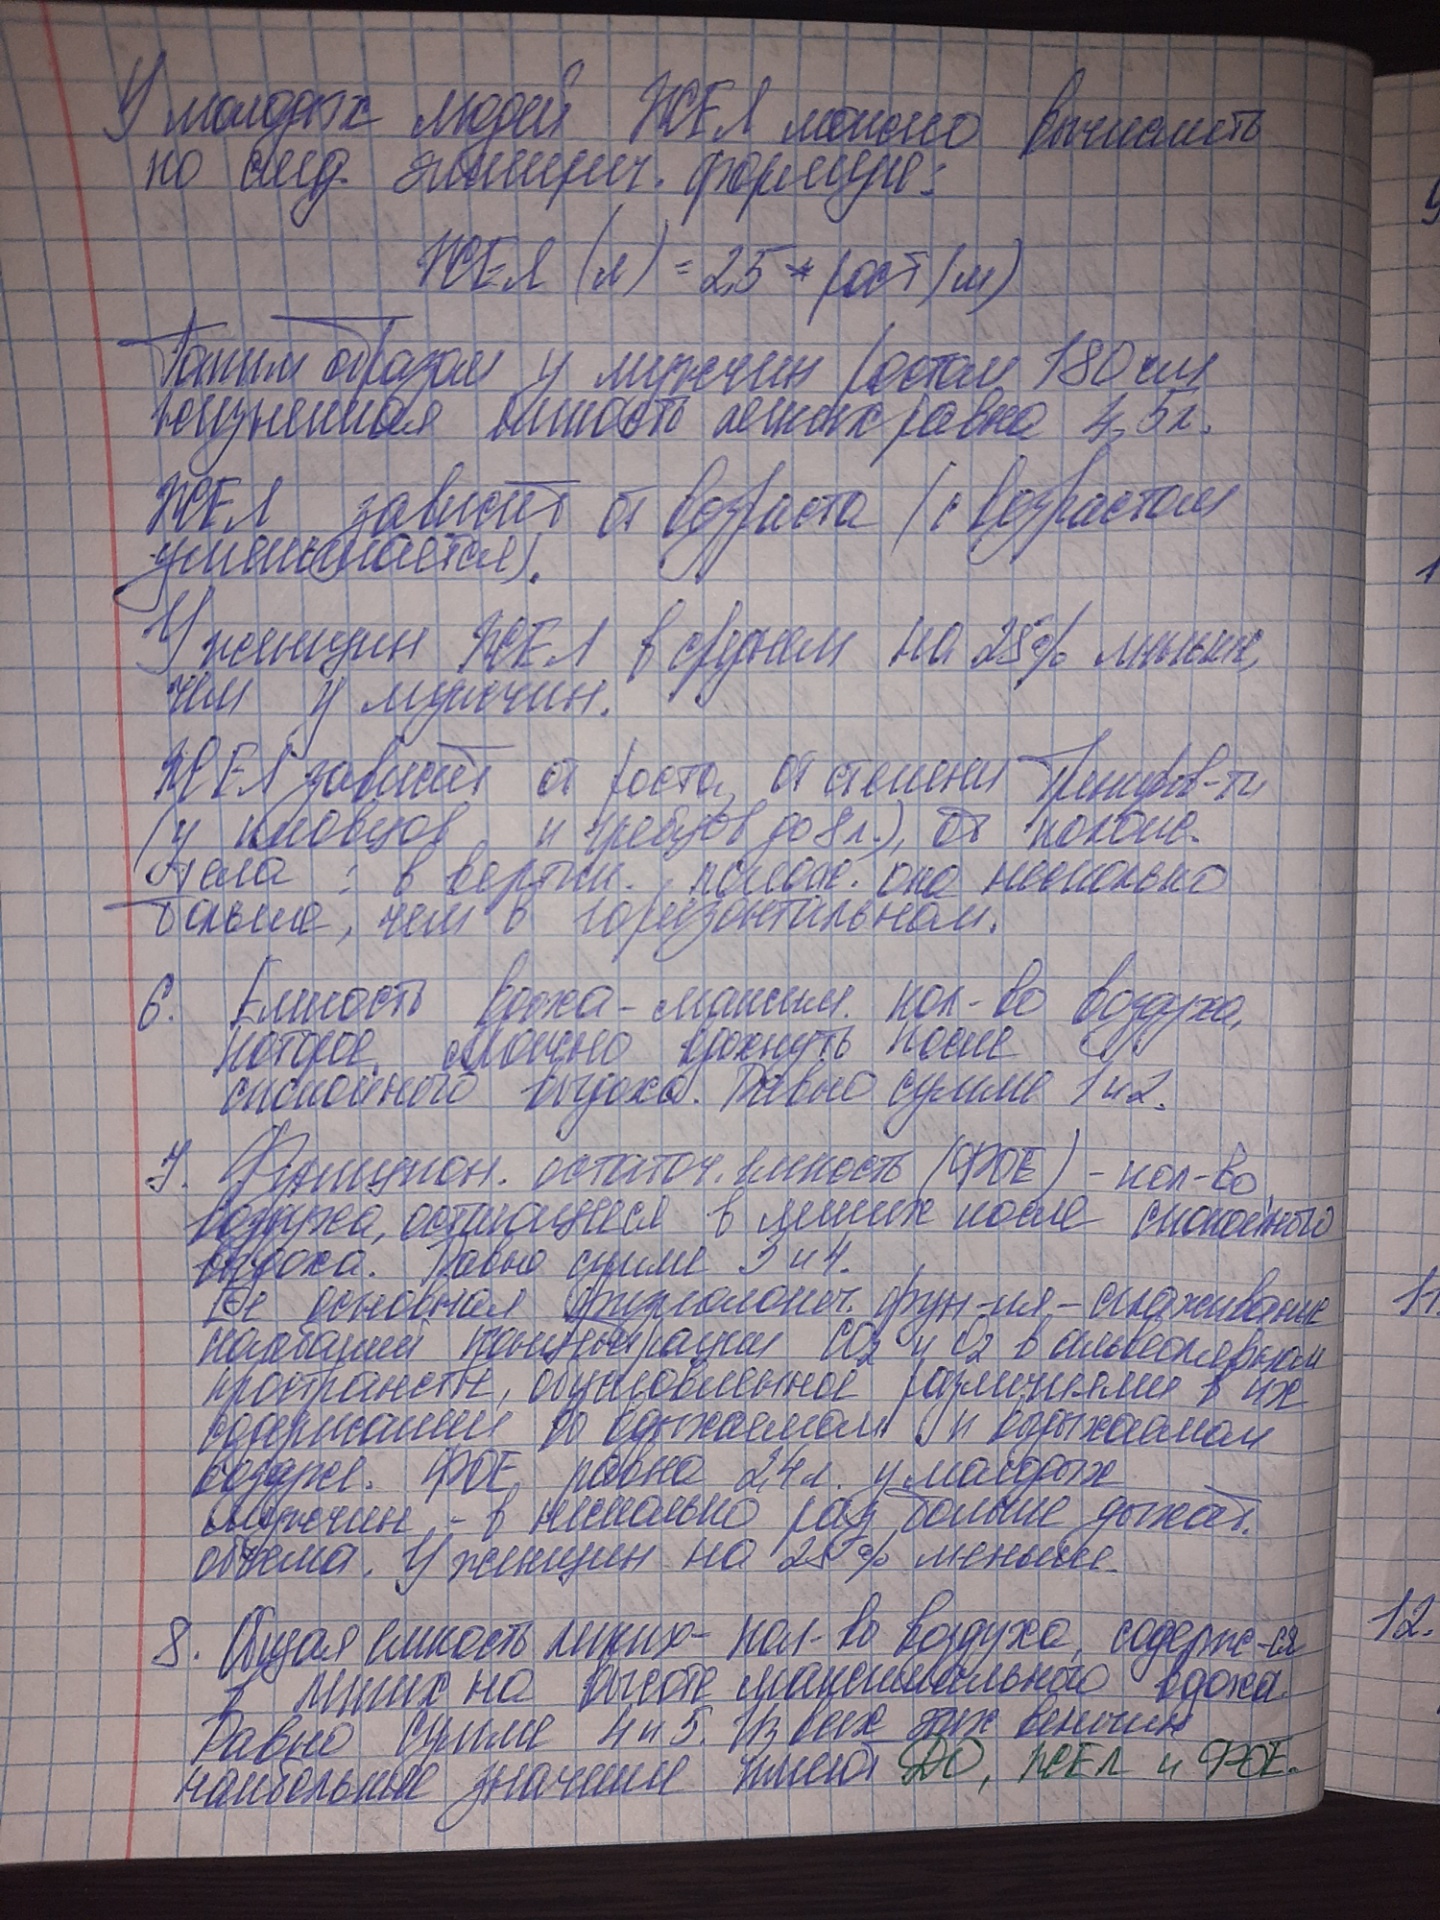 У молодых людей ЖЕЛ можно вычислить
по след. эмпирич. формуле:
ЖЕЛ (л) = 2,5 * рост (м)
Таким образом у мужчин ростом 180 см
жизненная емкость легких равна 4,5 л.
ЖЕЛ зависит от возраста (с возрастом
уменьшается).
У женщин ЖЕЛ в среднем на 25% меньше,
чем у мужчин.
ЖЕЛ зависит от роста, от степени тениров-ти
(у пловцов и гребцов до 8 л.), от полож.
тела : в вертик. полож. она несколько
больше, чем в горизонтальном.
6. Емкость вдоха - максим. кол-во воздуха,
которое можно вдохнуть после
спокойного выдоха. Равно сумме 1 и 2.
7. Функцион. остаточ. емкость (ФОЕ) - кол-во
воздуха, остающееся в легких после спокойного
выдоха. Равно сумме 3 и 4.
Ее основная физиологич. фун-ия - сглаживание
колебаний концентрации CO2 и O2 в альвеолярном
пространстве, обусловленное различиями в их
содержании во вдыхаемом и выдыхаемом
воздухе. ФОЕ равна 2,4 л. у молодых
мужчин, - в несколько раз больше дыхат.
объема. У женщин на 25% меньше.
8. Общая емкость легких - кол-во воздуха, содерж-ся
в легких на высоте максимального вдоха.
Равно сумме 4 и 5. Из всех этих величин
наибольшее значение имеют ДО, ЖЕЛ и ФОЕ.
1
11.
12.